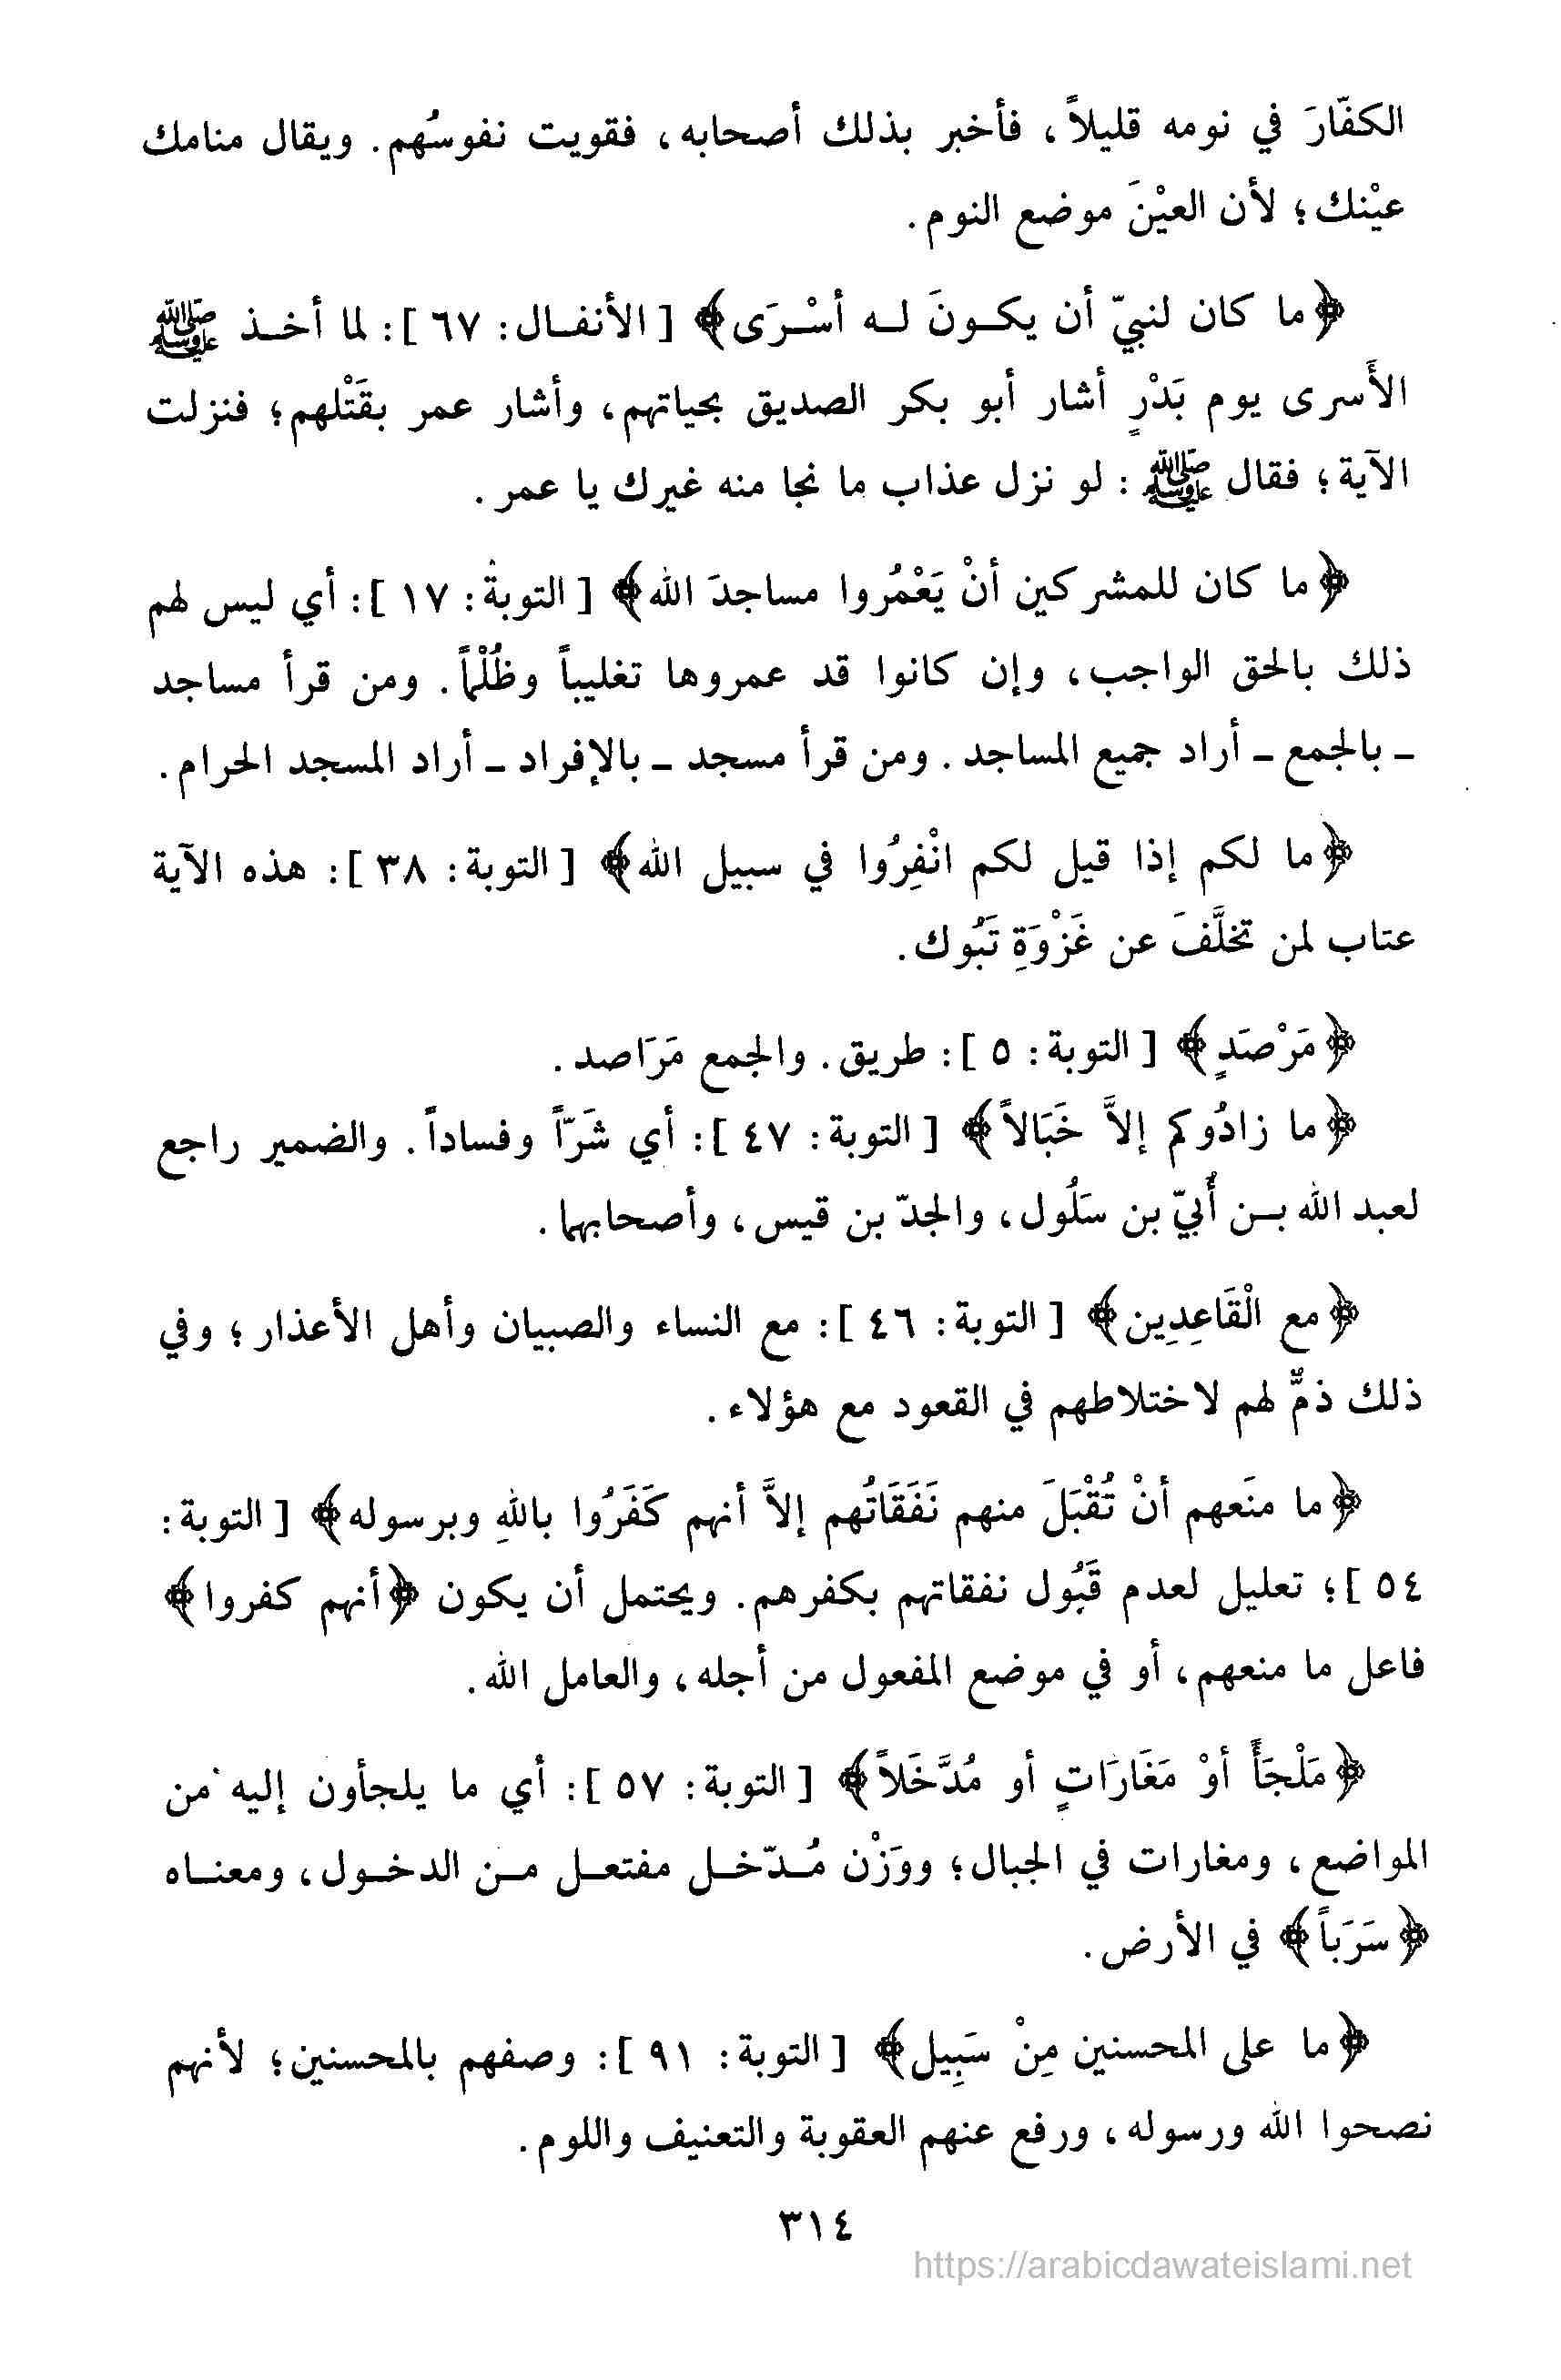 الكفّارَ في نومه قليلاً، فأخبر بذلك أصحابه، فقويت نفوسُهم. ويقال منامك
عيْنك؛ لأن العيْنَ موضع النوم.
﴿ما كان لنبيّ أن يكـونَ لـه أسْـرَى﴾ [الأنفـال: ٦٧]: لما أخـذ ﷺ
الأَسرى يوم بَدْرٍ أشار أبو بكر الصديق بحياتهم، وأشار عمر بقَتْلهم؛ فنزلت
الآية؛ فقال ﷺ: لو نزل عذاب ما نجا منه غيرك يا عمر.
﴿ما كان للمشركين أنْ يَعْمُروا مساجدَ الله﴾ [التوبة: ١٧]: أي ليس لهم
ذلك بالحق الواجب، وإن كانوا قد عمروها تغليباً وظُلْماً. ومن قرأ مساجد
ـ بالجمع ـ أراد جميع المساجد. ومن قرأ مسجد ـ بالإفراد ـ أراد المسجد الحرام.
﴿ما لكم إذا قيل لكم انْفِرُوا في سبيل الله﴾ [التوبة: ٣٨]: هذه الآية
عتاب لمن تخلَّفَ عن غَزْوَةِ تَبُوك.
﴿مَرْصَدٍ﴾ [التوبة: ٥]: طريق. والجمع مَرَاصد.
﴿ما زادُوكم إلاَّ خَبَالاً﴾ [التوبة: ٤٧]: أي شَرّاً وفساداً. والضمير راجع
لعبد الله بـن أُبيّ بن سَلُول، والجدّ بن قيس، وأصحابهما.
﴿مع الْقَاعِدِين﴾ [التوبة: ٤٦]: مع النساء والصبيان وأهل الأعذار؛ وفي
ذلك ذمٌّ لهم لاختلاطهم في القعود مع هؤلاء.
﴿ما منَعهم أنْ تُقْبَلَ منهم نَفَقَاتُهم إلاَّ أنهم كَفَرُوا باللهِ وبرسوله﴾ [التوبة:
٥٤]؛ تعليل لعدم قَبُول نفقاتهم بكفرهم. ويحتمل أن يكون ﴿أنهم كفروا﴾
فاعل ما منعهم، أو في موضع المفعول من أجله، والعامل الله.
﴿مَلْجَأً أوْ مَغَارَاتٍ أو مُدَّخَلاً﴾ [التوبة: ٥٧]: أي ما يلجأون إليه من
المواضع، ومغارات في الجبال؛ ووَزْن مُـدّخـل مفتعـل مـن الدخـول، ومعنـاه
﴿سَرَباً﴾ في الأرض.
﴿ما على المحسنين مِنْ سَبِيل﴾ [التوبة: ٩١]: وصفهم بالمحسنين؛ لأنهم
نصحوا الله ورسوله، ورفع عنهم العقوبة والتعنيف واللوم.
٣١٤
https://arabicdawateislami.net